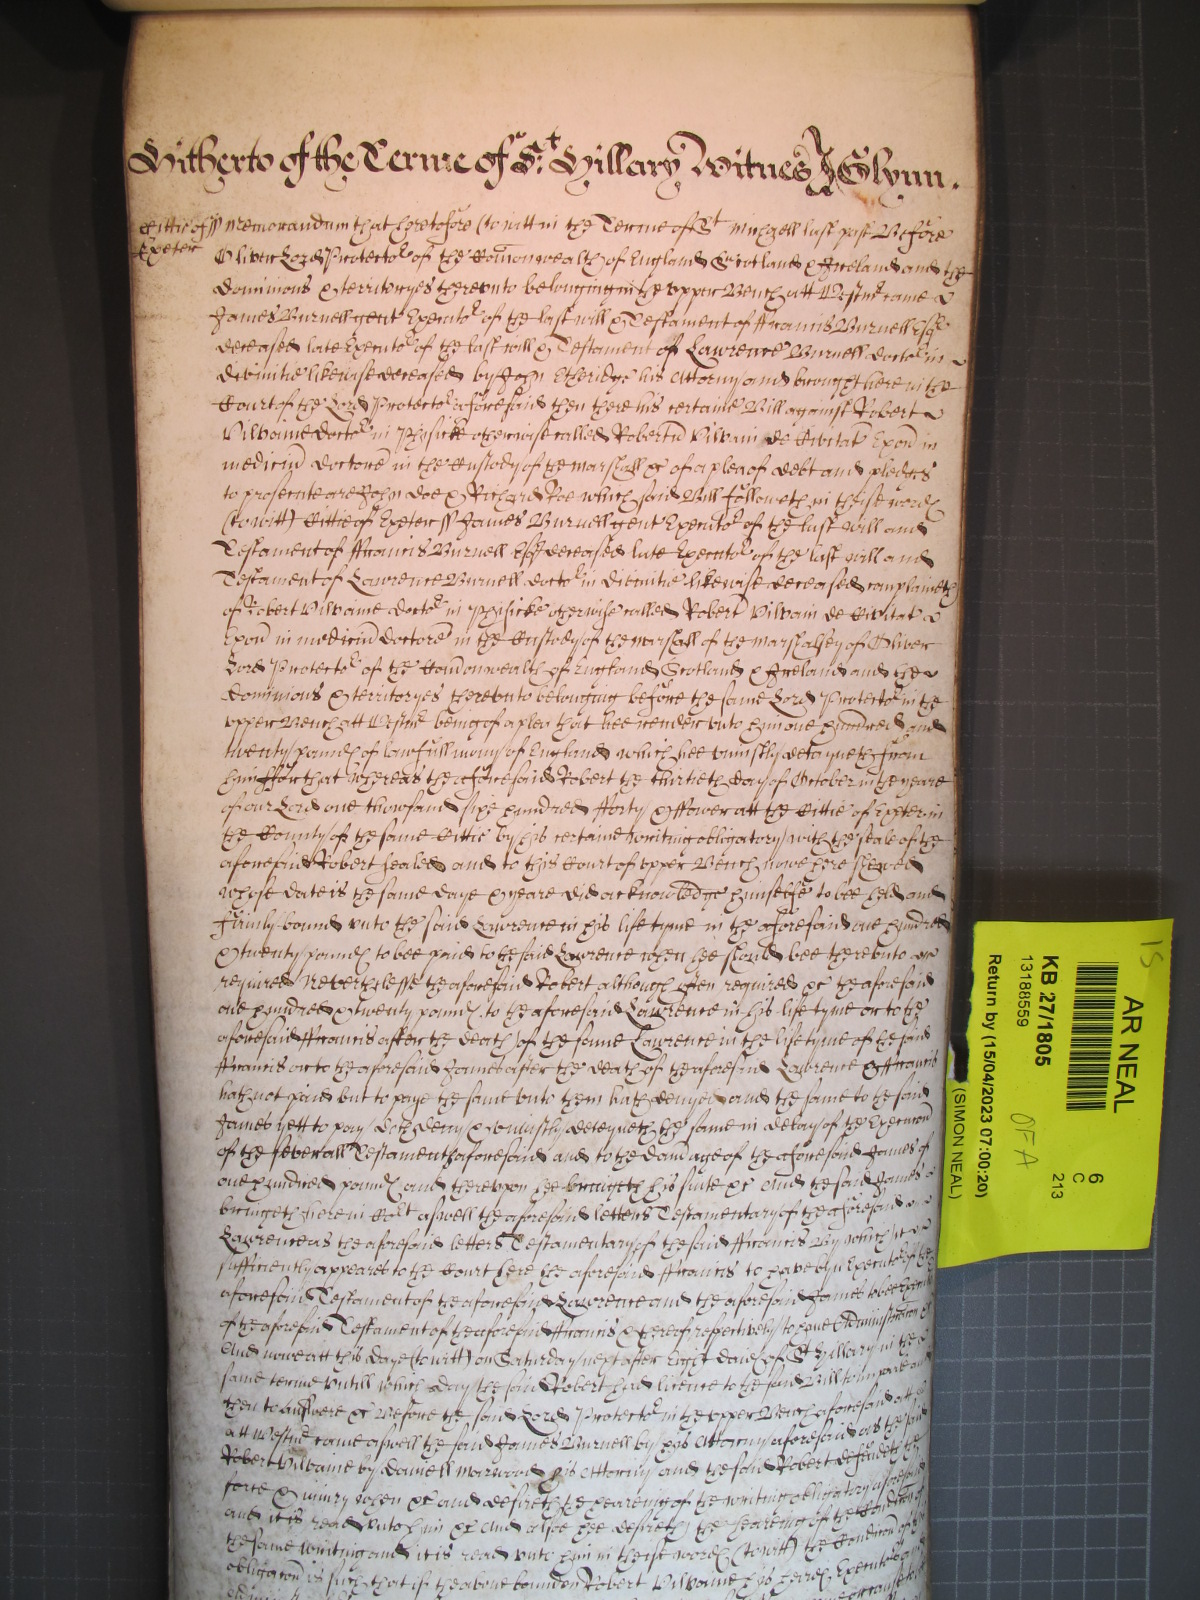 Hitherto of the Terme of St. Hillary Witnes J Glynn.
Cittie of ss Memorandum that heretofore (to witt) in the Terme of St Michaell last past Before
Exeter
Oliver Lord Protector of the Comonwealth of England Scotland & Ireland and the
dominions & territoryes thereunto belonging in the upper Bench att Westmr came
James Burnell gent Executor of the last will & Testament of ffrancis Burnell Esqr
deceased late Executor of the last will & Testament of Lawrence Burnell doctor in
divinitie likewise deceased by John Etheridge his Attorny and brought here in the
Court of the Lord Protector aforesaid then there his certaine Bill against Robert
Vilvaine doctor in Phisicke otherwise called Robertu Vilvain de Civitat Exon in
medicin doctore in the Custody of the Marshall &c of a plea of debt and pledges
to prosecute are John Doe & Richard Roe which said Bill followeth in these words
(to witt) Cittie of Exeter ss James Burnell gent Executor of the last will and
Testament of ffrancis Burnell Esqr deceased late Executor of the last will and
Testament of Lawrence Burnell doctor in divinitie likewise deceased complaineth
of Robert Vilvaine doctor in Phisicke otherwise called Robert Vilvain de Civitat
Exon in medicin doctore in the Custody of the Marshall of the Marshalsey of Oliver
Lord Protector of the Comonwealth of England Scotland & Ireland and the
dominions & territoryes thereunto belonging before the same Lord Protector in the
upper Bench att Westmr being of a plea that hee render unto him one hundred and
twenty pounds of lawfull mony of England which hee uniustly deteyneth from
him ffor that whereas the aforesaid Robert the thirtieth day of October in the yeare
of our Lord one thowsand sixe hundred fforty & ffower att the Cittie of Exeter in
the County of the same Cittie by his certaine writing obligatory with the seale of the
aforesaid Robert sealed and to this Court of upper Bench nowe here shewed
whose date is the same daye & yeare did acknowledge himselfe to bee held and
firmly bound unto the said Lawrence in his life tyme in the aforesaid one hundred
& twenty pounds to bee paid to the said Lawrence when hee should bee thereunto
required Neverthelesse the aforesaid Robert although often required &c the aforesaid
one hundred & twenty pounds to the aforesaid Lawrence in his life tyme or to the
aforesaid ffrancis after the death of the same Lawrence in the life tyme of the said
ffrancis or to the aforesaid James after the death of the aforesaid Lawrence & ffrancis
hath not paid but to paye the same unto them hath denyed and the same to the said
James yett to pay doth deny & uniustly deteyneth the same in delay of the Execucon
of the severall Testaments aforesaid and to the damage of the aforesaid James of
one hundred pounds and thereupon hee bringeth his suite &c And the said James
bringeth here in Cort aswell the aforesaid letters Testamentary of the aforesaid
Lawrence as the aforesaid letters Testamentary of the said ffrancis By which it
sufficiently appeares to the Court here the aforesaid ffrancis to have byn Executor of the
aforesaid Testament of the aforesaid Lawrence and the aforesaid James to bee Executor
of the aforesaid Testament of the aforesaid ffrancis & thereof respectively to have Administracon &c
And nowe att this daye (to witt) on Saturday next after Eight daies of St Hillary in the
same terme untill which day the said Robert had licence to the said Bill to imparle and
then to answere &c Before the said Lord Protector in the upper Bench aforesaid
att Westmr came aswell the said James Burnell by his Attorny aforesaid as the said
Robert Vilvaine by Daniell Marwood his Attorny and the said Robert defendeth the
force & iniury when &c and desireth the heareing of the writing obligatory aforesaid
and it is read unto him &c And alsoe hee desireth the heareing of the Condicon of
the same writing and it is read unto him in these words (to witt) the Condicon of this
obligacon is such that if the above bounden Robert Vilvaine his heires Executors
AR NEAL
KB 27/1805
13188559
Return by (15/04/2023 07:00:20)
(SIMON NEAL)
6
C
213
OFA
15